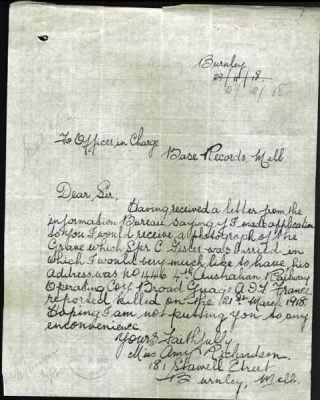 Burnley
29/11/18.
2/12/18.
To Officer in Charge
Base Records, Melb
Dear Sir,
Having received a letter from the
information Bureau saying if I made application
to You I would receive a photograph of the
Grave which Spr C. was burried in
which I would very much like to have, his
address was no 1446 4th Australian Railway
Operating Coy Broad Guage A.I.F. France
reported killed on the 21st March 1918.
Hoping I am not putting you to any
enconvenience
Yours Faithfully
Miss Amy Richardson.
181 Stawell Street
Burnley, Melb.